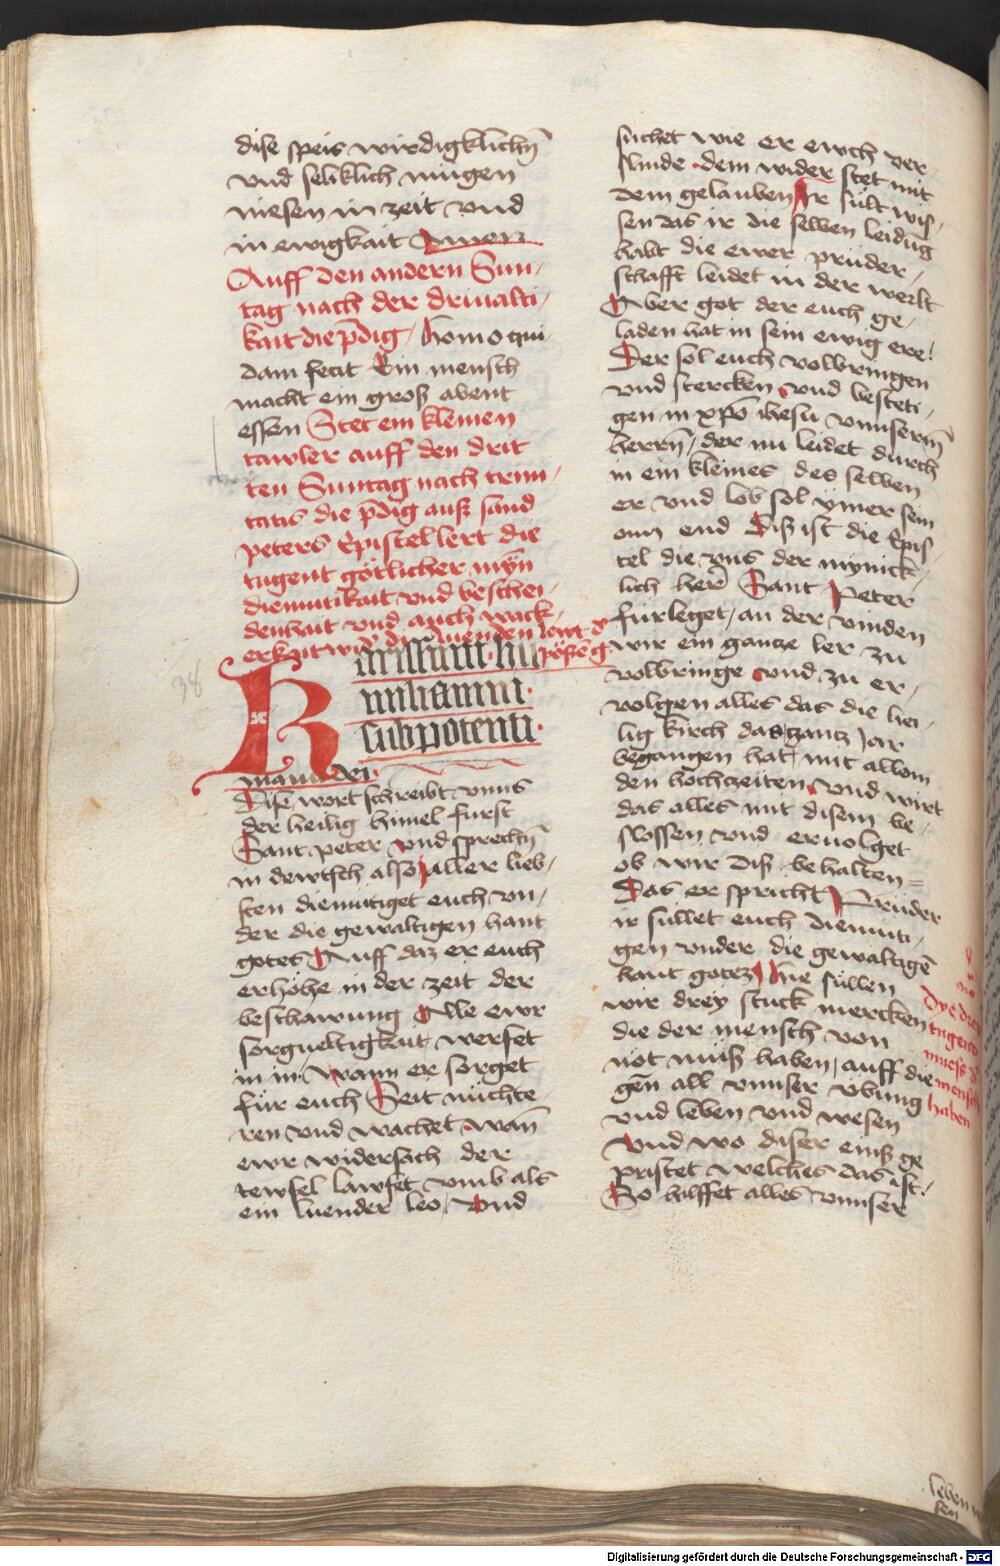 dise speis wirdigklichn̄
vnd seliklich mugen
niesen in zeit vnd
in ewigkait Amen
Auff den andern Sun/
tag nach der driualti/
kait die p̄dig / homo qui
dam fecit Ein mensch
macht ein groß abent
essen Stet em klemen
tawler auff den drit
ten Suntag nach trini/
tatis die p̄dig auß sand
peters Epistel lert die
tugent götlicher myn̄
diemutikait vnd beschei/
denhait vnd auch wack/
erkait wid' den
mani dei
sub potenti
Dise wort schreibt vnns
der heilig himel furst
Sant peter vnd sprechn̄
in dewtsch also aller lieb/
sten diemutiget euch vn/
der die gewaltigen hant
gotes Auff daz er euch
erhöhe in der zeit der
beschawung Alle ewr
sorgueltigkait werfet
in in Wann er sorget
für euch Seit nüchte
ren vnd wachet wan̄
ewr widersach der
tewfel lawfet vmb als
ein luender leo / Vnd
suchet wie er ewch ver/
slinde dem wider stet mit
dem gelauben Ir sült wis/
sen das ir die selben leidūg
habt die ewer prüder/
schafft leidet in der werlt
Aber got der euch ge/
laden hat in sein ewig ere!
Der sol euch volbringen
vnd stercken vnd besteti/
gen in xp̄o ihesu vnnserm̄
herrn̄ / der nu leidet durch
in ein kleines des selben
er vnd lob sol ymer sein
onn end Diß ist die Epis
tel die vns der mynick/
lich her̄ Sant Peter
fürleget / an der vinden
wir ein gantze ler zu
volbringe vnd zu er/
volgen alles das die hei/
lig kirch das gantz Jar
begangen hat / mit allom
den hochzeiten Vnd wirt
das alles mit disem be/
slossen vnd eruolget
ob wir diß behalten =
Das er spricht Prüder
ir süllet euch diemüti/
gen vnder die gewaltigē
hant gotez Hie süllen
wir drey stuck mercken
die der mensch von
not muß haben / auff die
gēn all vnnser vbung
vnd leben vnd wesen
Vnd wo diser einß ge
pristet welches das ist!
So hilffet alles vnnser
Dye drey
tugend
muess d
mensch
haben
38
leben
sen
Digitalisierung gefördert durch die Deutsche Forschungsgemeinschaft - DFG